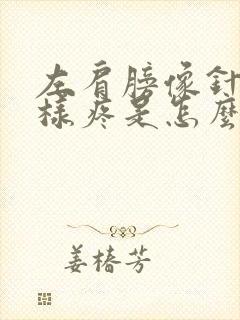 左肩膀像针
样疼是怎麽
姜椿芳